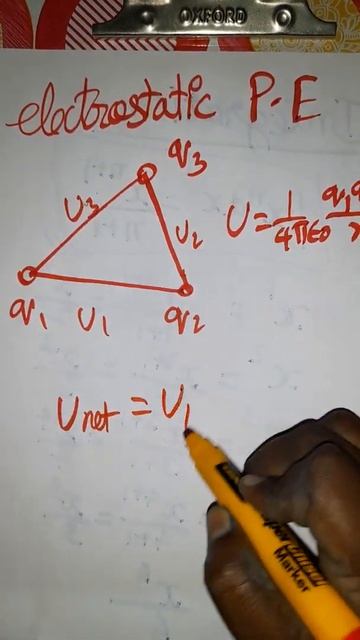 OXFORD
electrostatic P.E
q3
U3
U2
U = 1/4π∈0 q1q
q1 U1 q2
Unet = U1
Marker